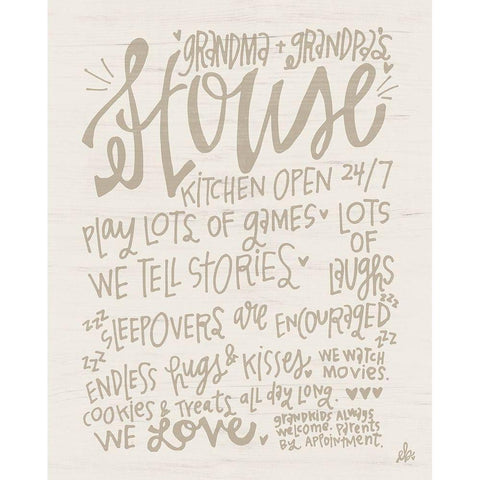 GRANDMA + GRANDPA'S
House
KITCHEN OPEN 24/7
PLAY LOTS OF GAMES
LOTS
OF
LAUGHS
WE TELL STORIES
ZZZ SLEEPOVERS are ENCOURAGED ZZZ
ZZZ
ZZZ
ENDLESS hugs & KISSES
WE WATCH
MOVIES.
COOKIES & TREATS all DAY LONG.
WE Love
GRANDKIDS ALWAYS
WELCOME. PARENTS
BY APPOINTMENT.